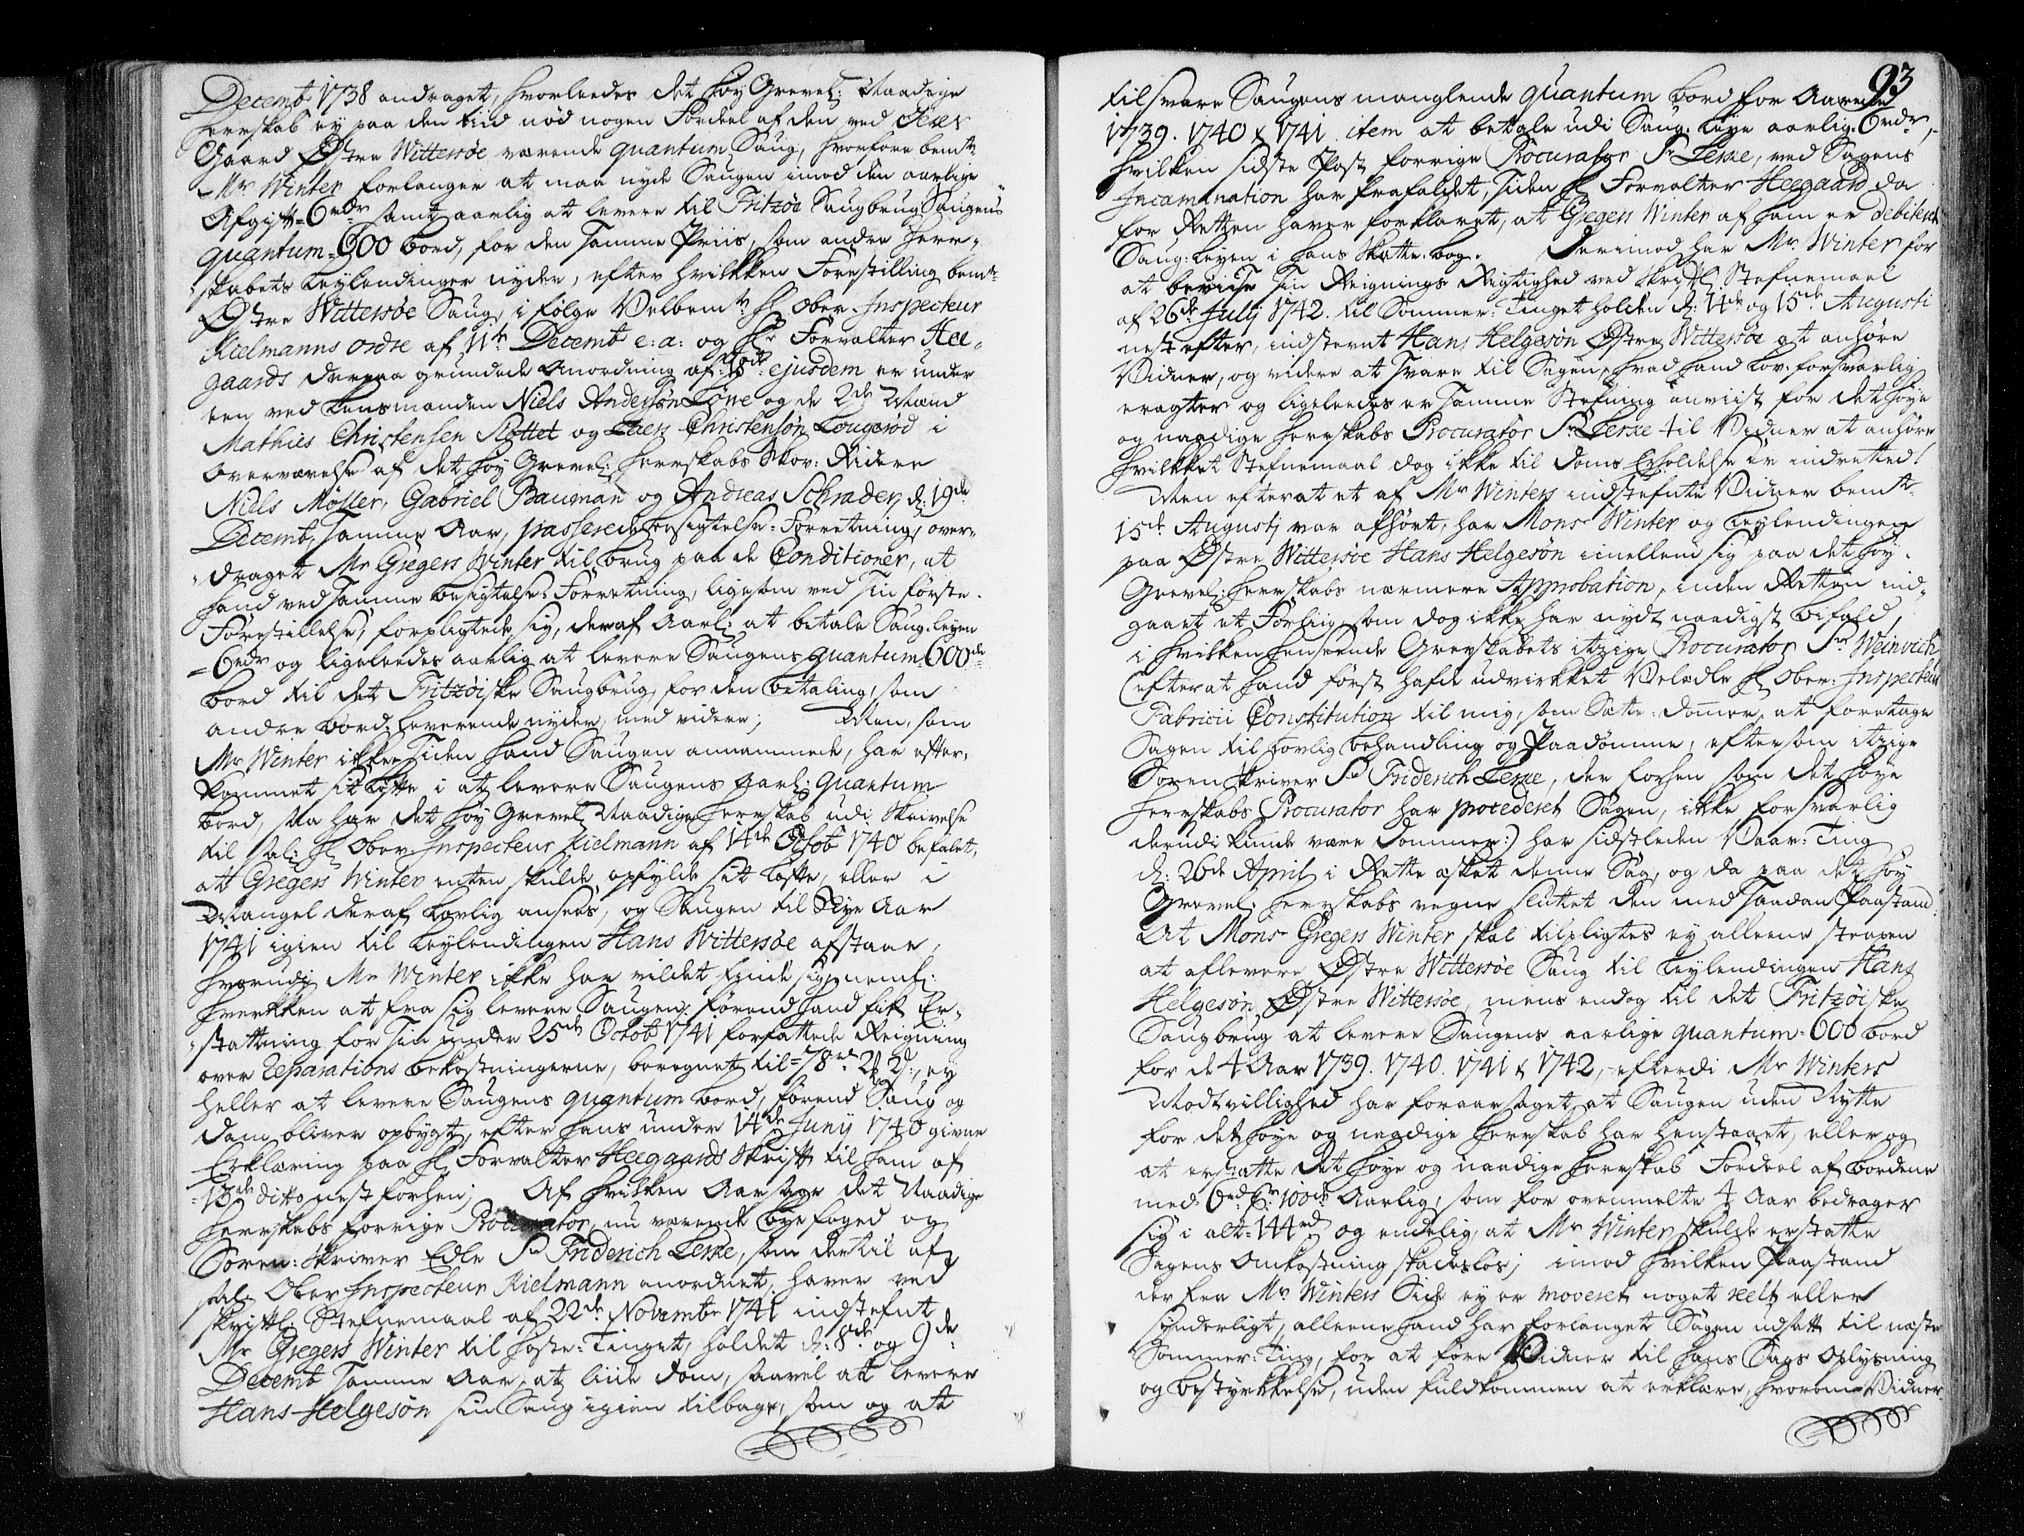 Decemb: 1738 andraget, hvorleedes det høy Grevel: Naadige
Herskab ey paa den tiid nød nogen Fordeel af den ved Deres
Gaard Østre Wittersøe værende quantum Saug, hvorfore bemte
Mr Winter forlanger at maa nyde Saugen imod den aarlige
Afgift 6 rdr samt aarlig at levere til Fritzøe Saugbrug Saugens
quantum 600 bord, for den samme Priis, som andre Herr-
skabets Leylendinger nyder, efter hvilken Forestilling bemte
Østre Wittersøe Saug, i følge Velbemte Hr Ober-Inspecteur
Kielmanns ordre af 11te Decemb e: a: og Hr Forvalter Hee-
gaards derpaa grundede Anordning af 18de ejusdem er under
een ved Lensmanden Niels Andersøn Løwe og de 2de Mænd
Mathies Christensen Slottet og Laers Christensøn Lougerød i
Overværelse af det høy Grevel: Herskabs Skov-Ridere
Niels Møller, Gabriel Bauman og Andreas Schrader, d: 19de
Decemb, samme Aar, passerede besigtelse-Forretning, over-
draget Mr Gregers Winter til brug paa de Conditioner, at
hand ved samme besigtelse-Forretning, ligesom ved sin første
Forestillelse, forpligtede sig, deraf Aarl: at betale Saug-leyen
6 rdr og ligeleedes aarlig at levere Saugens quantum 600de
bord til det Fritzøiske Saugbrug, for den betaling, som
andre bord-leverende nyder, med videre; Men, som
Mr Winter ikke siden hand Saugen annammede, har efter-
kommet sit løfte, i at levere Saugens aarl: quantum
bord, saa har det høy Grevel: Naadige Herskab udi Skrivelse
til sal: Hr Ober-Inspecteur Kielmann af 14de Octob 1740 befalet,
at Gregers Winter enten skulde opfylde sit løfte, eller i
Mangel deraf lovlig ansees, og Saugen til Nye Aar
1741 igien til Leylendingen Hans Wittersøe afstaae,
hvorudi Mr Winter ikke har vildet finde sig nemlig:
hverken at fra sig levere Saugen, førend hand fik Er-
stattning for sin under 25de Octob 1741 forfattede Reigning
over Reparations bekostningerne, beregnet til 78 rd 2 2 d:, ey
heller at levere Saugens quantum bord, førend Saug og
dam bliver opbygt, efter hans under 14de Junij 1740 givne
Erklæring paa Hr Forvalter Heegaards Skrift til ham af
13de ditto nest forhen; Af hvilken Aarsage det Naadige
Herskabs forrige Procurator, nu værende Byefoged og
Soren-skriver Edle Sr Friderich Lerxe, som dertil af
sal: Ober Inspecteur Kielmann anordnet, haver ved
skriftl: Stefnemaal af 22de Novembr 1741 indstefnt
Mr Gregers Winter til Høste-Tinget, holdet d: 8de og 9de
Decemb samme Aar, at liide dom, saavel at levere
Hans Helgesøn sin Saug igien tilbage, som og at
93
tilsvare Saugens manglende quantum bord for Aarene
1739. 1740 & 1741. item at betale udi Saug-leye aarlig 6 rdr,
hvilken sidste Post forrige Procurator Sr Lerxe, ved Sagens
Incamination har frafaldet, siden Hr Forvalter Heegaard da
for Retten haver forklaret, at Gregers Winter af ham er debiteret
Saug-leyen i hans Skatte-bog. Derimod har Mr Winter for
at bevise sin Reignings Rigtighed ved skriftl: Stefnemaal
af 26de July 1742 til Sommer-Tinget holden d: 14de og 15de Augusti
nest efter, indstevnt Hans Helgesøn Østre Wittersøe at anhøre
Vidner, og videre at svare til Sagen, hvad hand lov-forsvarlig
eragter og ligeleedes er samme Stefning anviist for det høye
og naadige Herskabs Procurator Sr Lerxe til Vidner at anhøre
hvilket Stefnemaal dog ikke til doms Erholdelse er indrettet!
Men efterat et af Mr Winters indstefnte Vidner bemte
15de Augustj var afhørt, har Monsr Winter og Leylendingen
paa Østre Wittersøe Hans Helgesøn imellem sig paa det høy
Grevel: Herskabs nærmere Approbation, inden Retten ind-
gaaet et Forliig, som dog ikke har nydt naadigst bifald,
i hvilken henseende Grevskabets itzige Procurator Sr Weinvich
(efterat hand først hafde udvirket Velædle Hr Ober-Inspecteur
Fabricii Constitution til mig, som Sætte-domer, at foretage
Sagen til lovlig behandling og Paadømme, eftersom itzige
Sorenskriver Sr Friderich Lerxe, der forhen som det høye
Herskabs Procurator har procederet Sagen, ikke forsvarlig
derudi kunde være Dommer:) har sidstleden Vaar-Ting
d: 26de April i Rette æsket denne Sag, og da paa det høy
Grevel: Herskabs vegne sluttet den med saadan Paastand:
At Monsr Gregers Winter skal tilpligtes ey alleene strapen
at aflevere Østre Wittersøe Saug til Leylendingen Hans
Helgesøn Østre Wittersøe, mens endog til det Fritzøiske
Saugbrug at levere Saugens aarlige quantum 600 bord
for de 4 Aar 1739. 1740. 1741 & 1742, efterdi Mr Winters
Modtvillighed har foraarsaget, at Saugen uden Nytte
for det høye og naadige Herskab har henstaaet, eller og
at erstatte det høye og naadige Herskab Fordeel af bordene
med 6 rd pr 100de Aarlig, som for ovenmelte 4 Aar bedrager
sig i alt 144 rd og endelig, at Mr Winter skulde erstatte
Sagens Omkostning skadesløs; imod hvilken Paastand
der fra Mr Winters Side ey er moveret noget reelt eller
synderligt, alleene hand har forlanget Sagen udsatt til næste
Sommer-Ting, for at føre Vidner til hans Sags Oplysning
og bestyrkelse, uden fuldkommen at erklære, hvorom Vidner